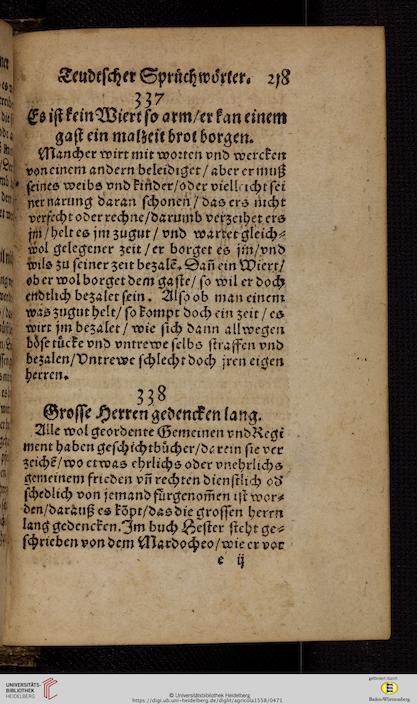 Teudtscher Sprüchwörter. 218
337
Es ist kein Wiert so arm/er kan einem
gast ein malzeit brot borgen.
Mancher wirt mit worten vnd wercken
von einem andern beleidiget/ aber er muß
seines weibs vnd kinder/oder vielleicht sei
ner narung daran schonen/ das ers nicht
verfecht oder rechne/darumb verzeihet ers
jm/helt es jm zugut/ vnd wartet gleich-
wol gelegener zeit/er borget es jm/vnd
wils zu seiner zeit bezalē. Dañ ein Wiert/
ob er wol borget dem gaste/ so wil er doch
endtlich bezalet sein. Also ob man einem
was zugut helt/ so kompt doch ein zeit/ es
wirt jm bezalet/ wie sich dann allwegen
böse tücke vnd vntrewe selbs straffen vnd
bezalen/Vntrewe schlecht doch jren eigen
herren.
338
Grosse Herren gedencken lang.
Alle wol geordente Gemeinen vnd Regi
ment haben geschichtbücher/darein sie ver
zeichē/wo etwas ehrlichs oder vnehrlichs
gemeinem frieden vñ rechten dienstlich od̕
schedlich von jemand fürgenom̄en ist wor-
den/darauß es kōpt/das die grossen herrn
lang gedencken. Im buch Hester steht ge-
schrieben von dem Mardocheo/wie er vor
e ij
UNIVERSITÄTS-
BIBLIOTHEK
HEIDELBERG
© Universitätsbibliothek Heidelberg
https://digi.ub.uni-heidelberg.de/diglit/agricola1558/0471
gefördert durch
Baden-Württemberg